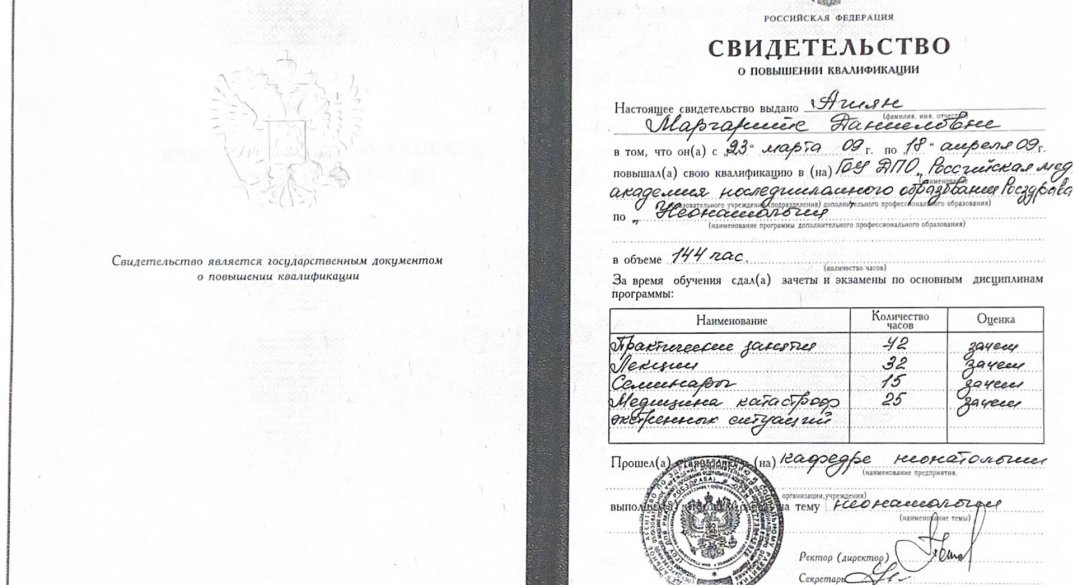 Свидетельство является государственным документом
о повышении квалификации
РОССИЙСКАЯ ФЕДЕРАЦИЯ
СВИДЕТЕЛЬСТВО
О ПОВЫШЕНИИ КВАЛИФИКАЦИИ
Настоящее свидетельство выдано Агиян
(фамилия, имя, отчество)
Маргарите Даниеловне
в том, что он(а) с „23" марта 09 г. по „18" апреля 09 г.
повышал(а) свою квалификацию в (на) ГОУ ДПО „Российская мед.
(наименование
академия последипломного образования Росздрава
образовательного учреждения (подразделения) дополнительного профессионального образования)
по „Неонатологии"
(наименование программы дополнительного профессионального образования)
в объеме 144 час.
(количество часов)
За время обучения сдал(а) зачеты и экзамены по основным дисциплинам
программы:
Наименование Количество часов Оценка
Практические занятия 72 зачет
Лекции 32 зачет
Семинары 15 зачет
Медицина катастроф 25 зачет
экстренных ситуаций
Прошел(а) (на) кафедре неонатологии
(наименование предприятия,
организации, учреждения)
на тему неонатологии
(наименование темы)
Ректор (директор)
Секретарь